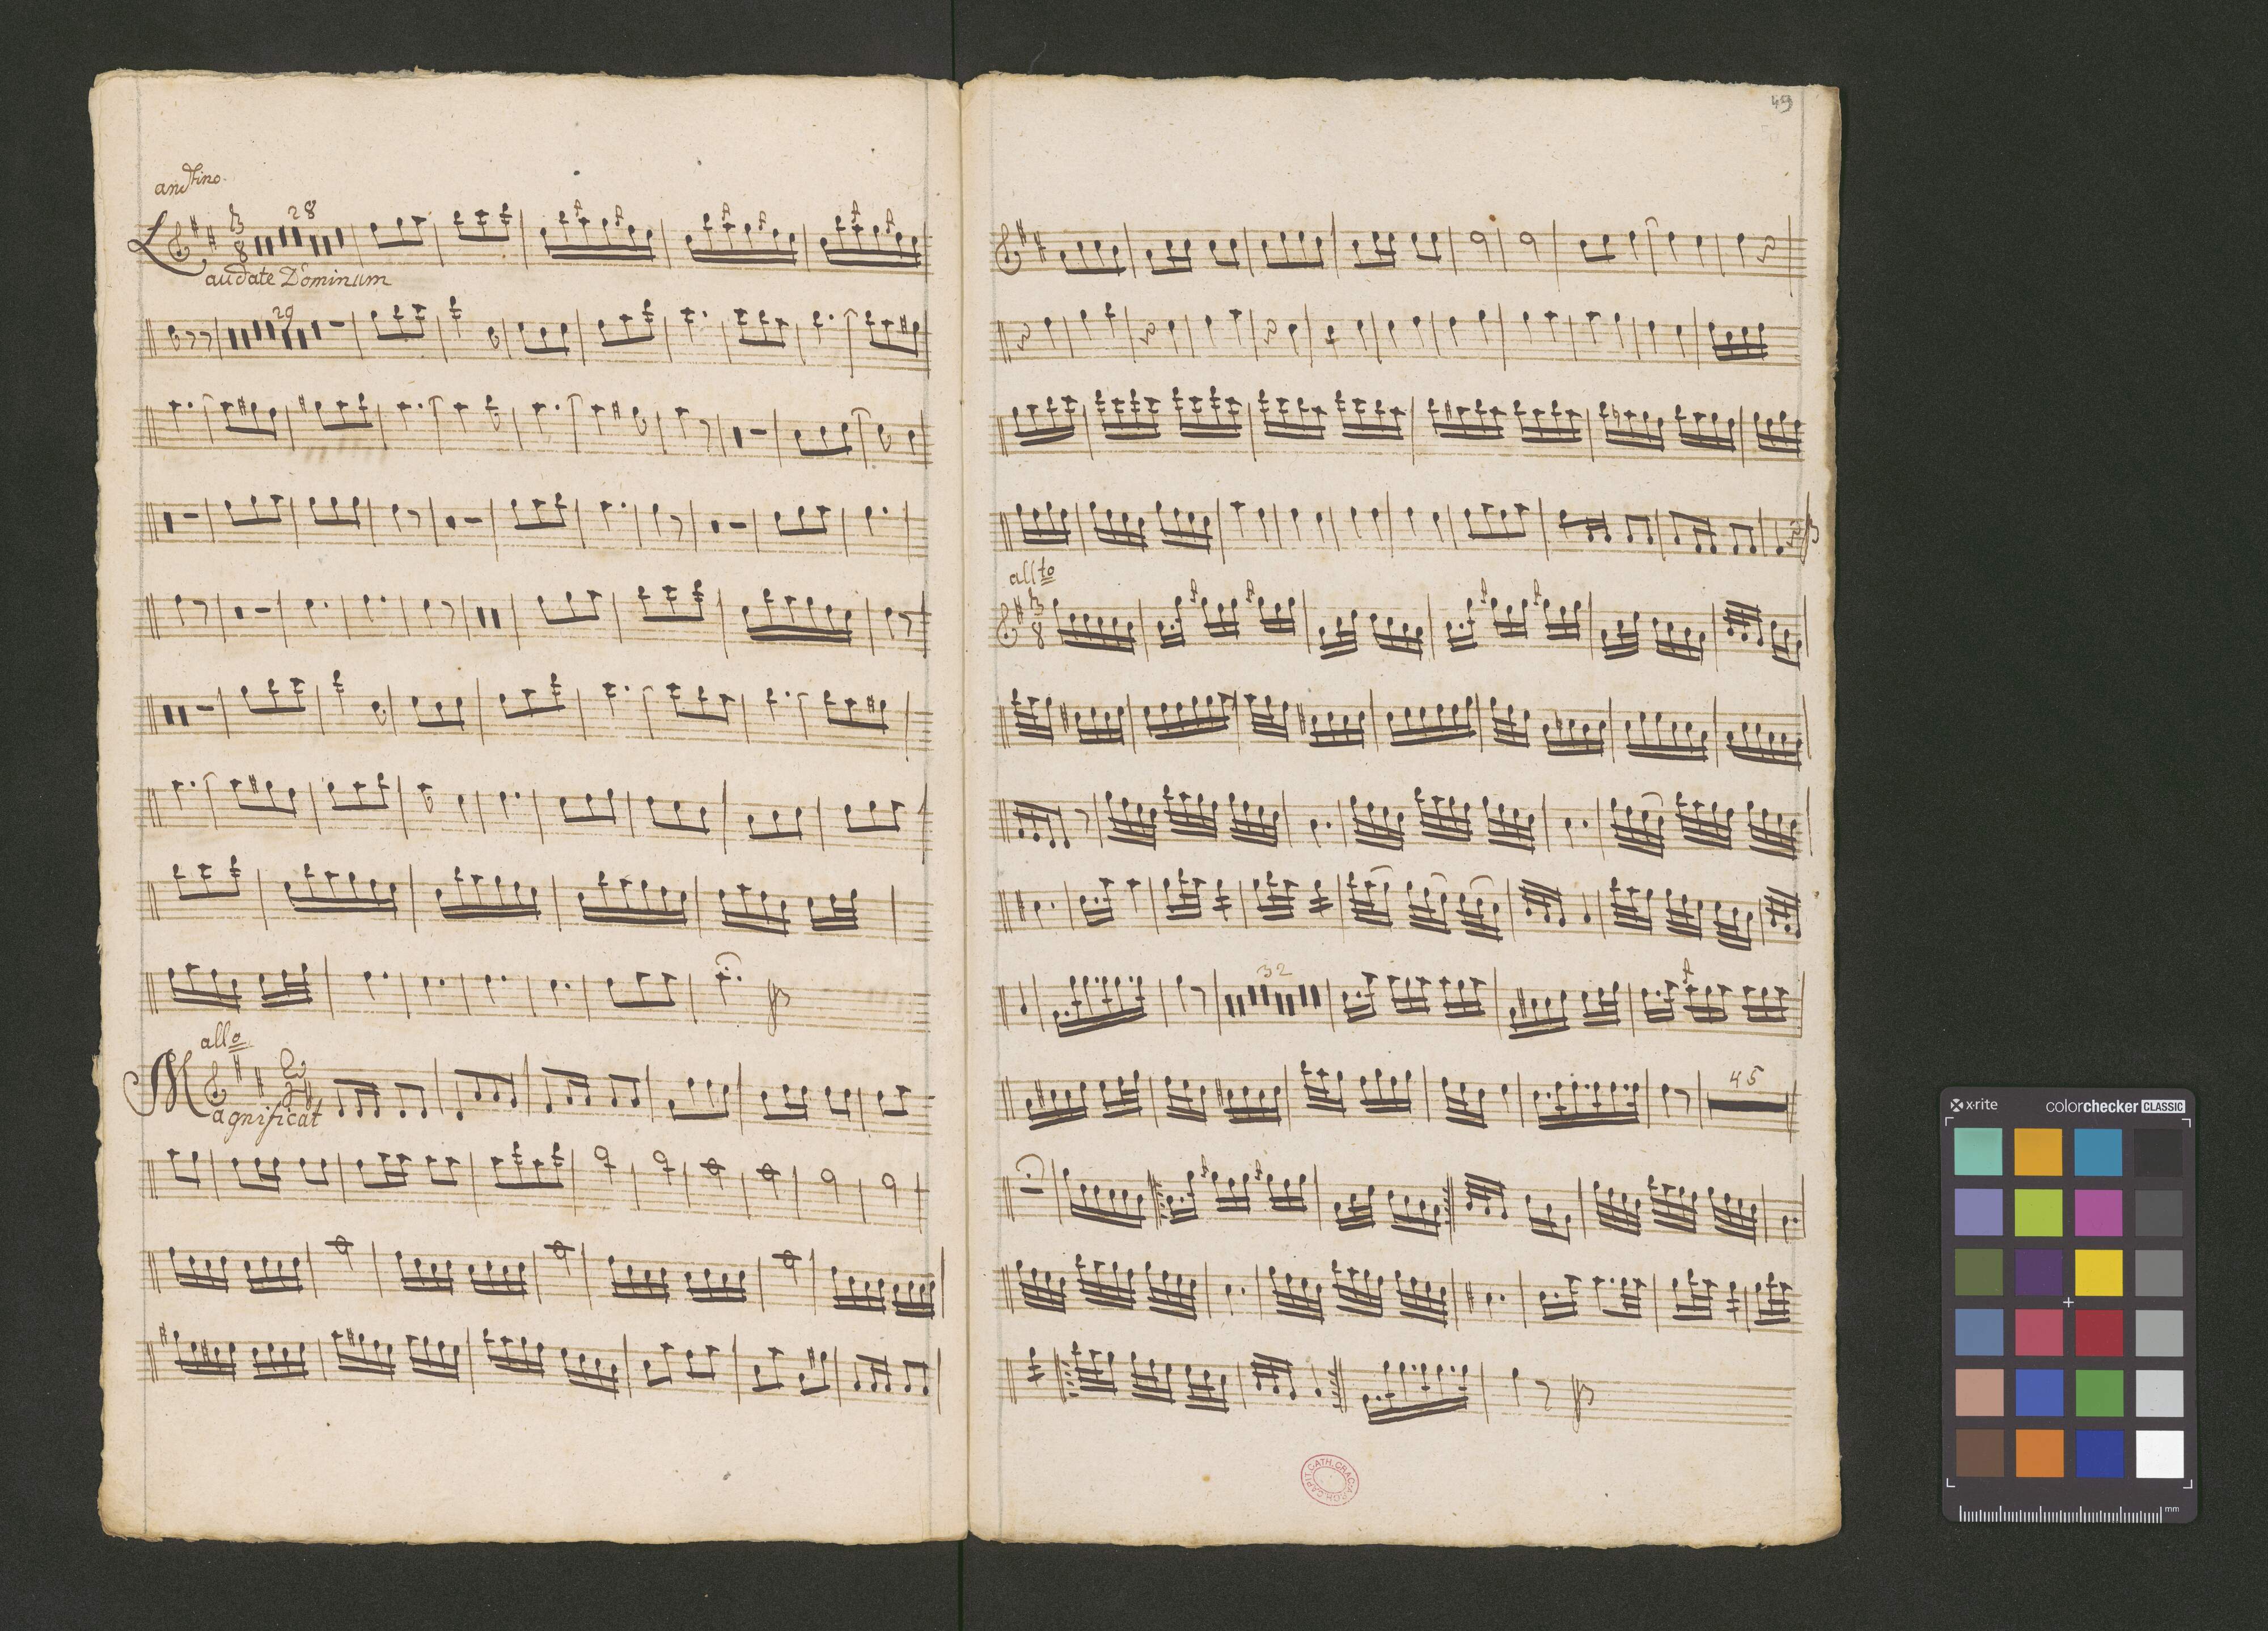 andtino
28
3
8
Laudate Dominum
29
allo
2
4
Magnificat
49
allto
3
8
32
45
CAPIT. CATH. CRAC
x-rite
colorchecker CLASSIC
mm